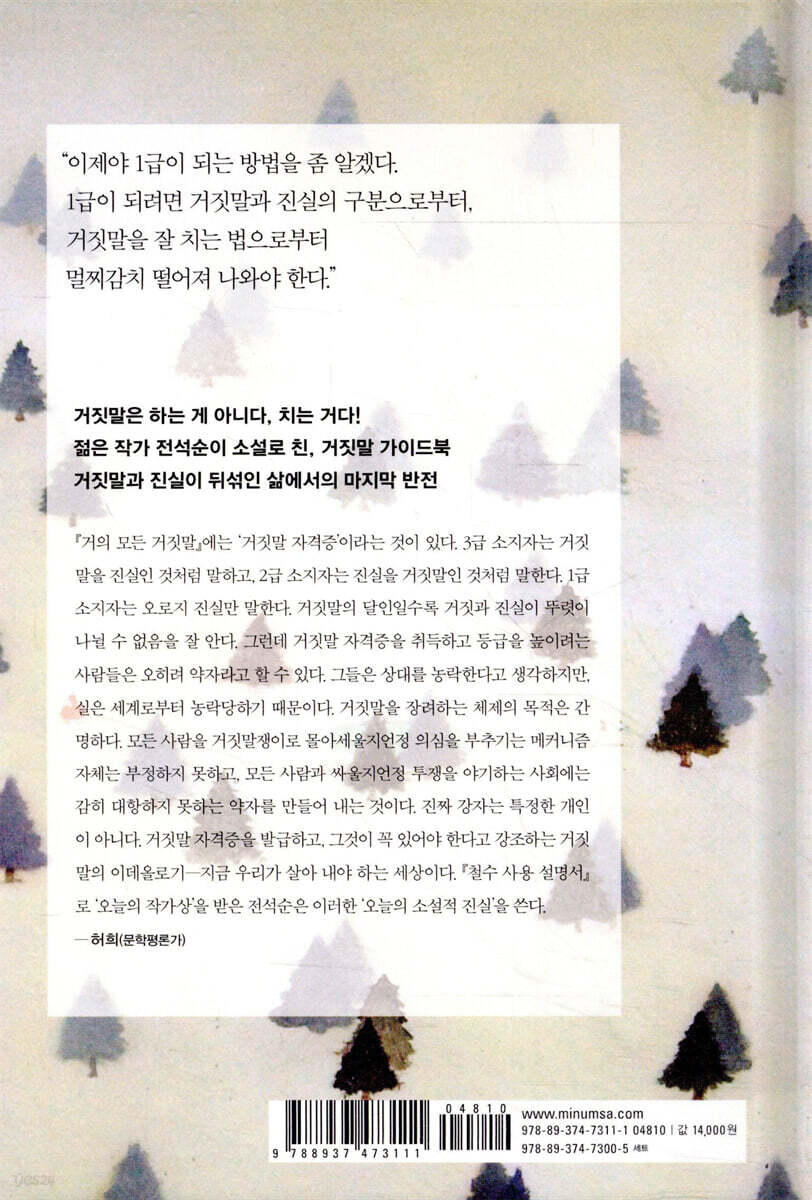 “이제야 1급이 되는 방법을 좀 알겠다.
1급이 되려면 거짓말과 진실의 구분으로부터,
거짓말을 잘 치는 법으로부터
멀찌감치 떨어져 나와야 한다.”
거짓말은 하는 게 아니다, 치는 거다!
젊은 작가 전석순이 소설로 친, 거짓말 가이드북
거짓말과 진실이 뒤섞인 삶에서의 마지막 반전
『거의 모든 거짓말』에는 ‘거짓말 자격증’이라는 것이 있다. 3급 소지자는 거짓
말을 진실인 것처럼 말하고, 2급 소지자는 진실을 거짓말인 것처럼 말한다. 1급
소지자는 오로지 진실만 말한다. 거짓말의 달인일수록 거짓과 진실이 뚜렷이
나뉠 수 없음을 잘 안다. 그런데 거짓말 자격증을 취득하고 등급을 높이려는
사람들은 오히려 약자라고 할 수 있다. 그들은 상대를 농락한다고 생각하지만,
실은 세계로부터 농락당하기 때문이다. 거짓말을 장려하는 체제의 목적은 간
명하다. 모든 사람을 거짓말쟁이로 몰아세울지언정 의심을 부추기는 메커니즘
자체는 부정하지 못하고, 모든 사람과 싸울지언정 투쟁을 야기하는 사회에는
감히 대항하지 못하는 약자를 만들어 내는 것이다. 진짜 강자는 특정한 개인
이 아니다. 거짓말 자격증을 발급하고, 그것이 꼭 있어야 한다고 강조하는 거짓
말의 이데올로기—지금 우리가 살아 내야 하는 세상이다. 『철수 사용 설명서』
로 ‘오늘의 작가상’을 받은 전석순은 이러한 ‘오늘의 소설적 진실’을 쓴다.
—허희(문학평론가)
04810
9 788937 473111
www.minumsa.com
978-89-374-7311-1 04810 | 값 14,000원
978-89-374-7300-5 세트
yes24